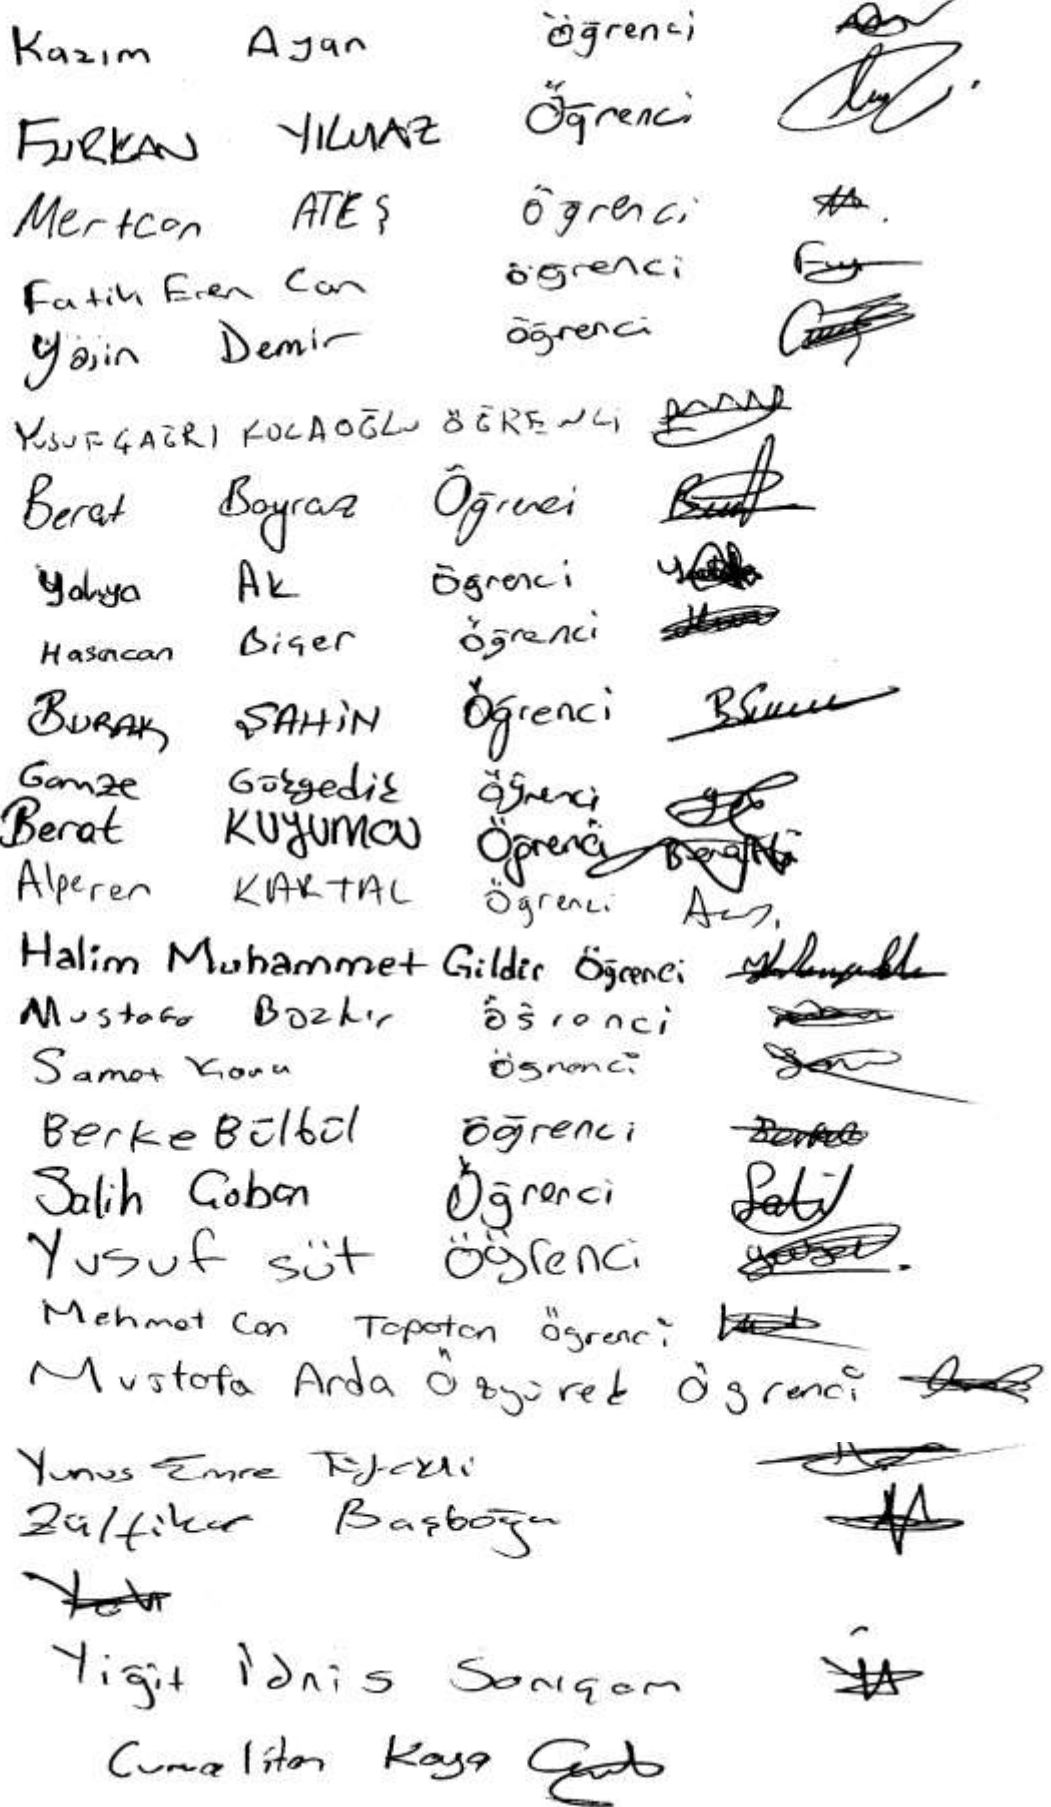 Kazım Ayan öğrenci
FURKAN YILMAZ Öğrenci
Mertcan ATEŞ Öğrenci
Fatih Eren Can öğrenci
Yasin Demir öğrenci
YUSUF ÇAĞRI KOCAOĞLU ÖĞRENCİ
Berat Bayraz Öğrenci
Yahya Ak öğrenci
Hasancan Biçer öğrenci
BURAK ŞAHİN Öğrenci
Gamze Gözgedik öğrenci
Berat KUYUMCU Öğrenci
Alperen KARTAL Öğrenci
Halim Muhammet Gildir Öğrenci
Mustafa Bozkır öğrenci
Samet öğrenci
Berke Bülbül öğrenci
Salih Çoban Öğrenci
Yusuf süt öğrenci
Mehmet Can Topatan öğrenci
Mustafa Arda Özyürek Öğrenci
Yunus Emre
Zülfikar Başboğa
Yiğit İdris Sarıçam
Kaya